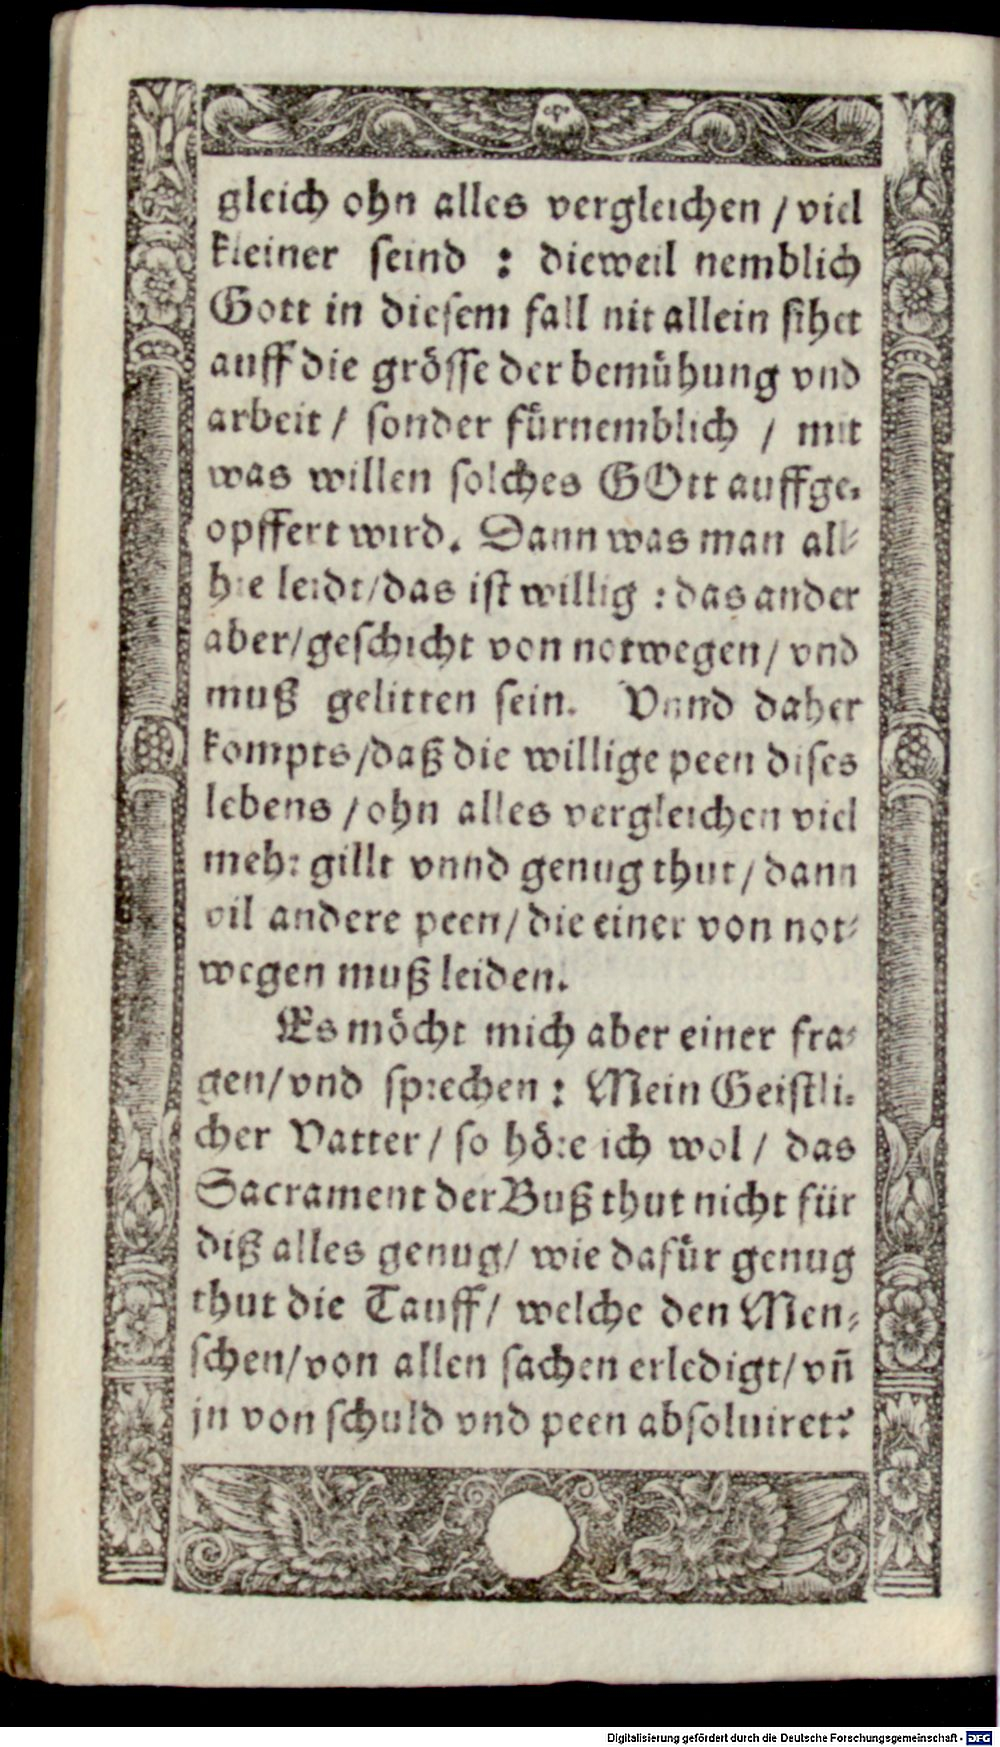 gleich ohn alles vergleichen / viel
kleiner seind : dieweil nemblich
Gott in diesem fall nit allein sihet
auff die grösse der bemühung vnd
arbeit / sonder fürnemblich / mit
was willen solches GOtt auffge-
opffert wird. Dann was man all-
hie leidt / das ist willig : das ander
aber / geschicht von notwegen / vnd
muß gelitten sein. Vnnd daher
kompts / daß die willige peen dises
lebens / ohn alles vergleichen viel
mehr gillt vnnd genug thut / dann
vil andere peen / die einer von not-
wegen muß leiden.
Es möcht mich aber einer fra-
gen / vnd sprechen : Mein Geistli-
cher Vatter / so höre ich wol / das
Sacrament der Buß thut nicht für
diß alles genug / wie dafür genug
thut die Tauff / welche den Men-
schen / von allen sachen erledigt / vñ
jn von schuld vnd peen absoluiret?
Digitalisierung gefördert durch die Deutsche Forschungsgemeinschaft - DFG